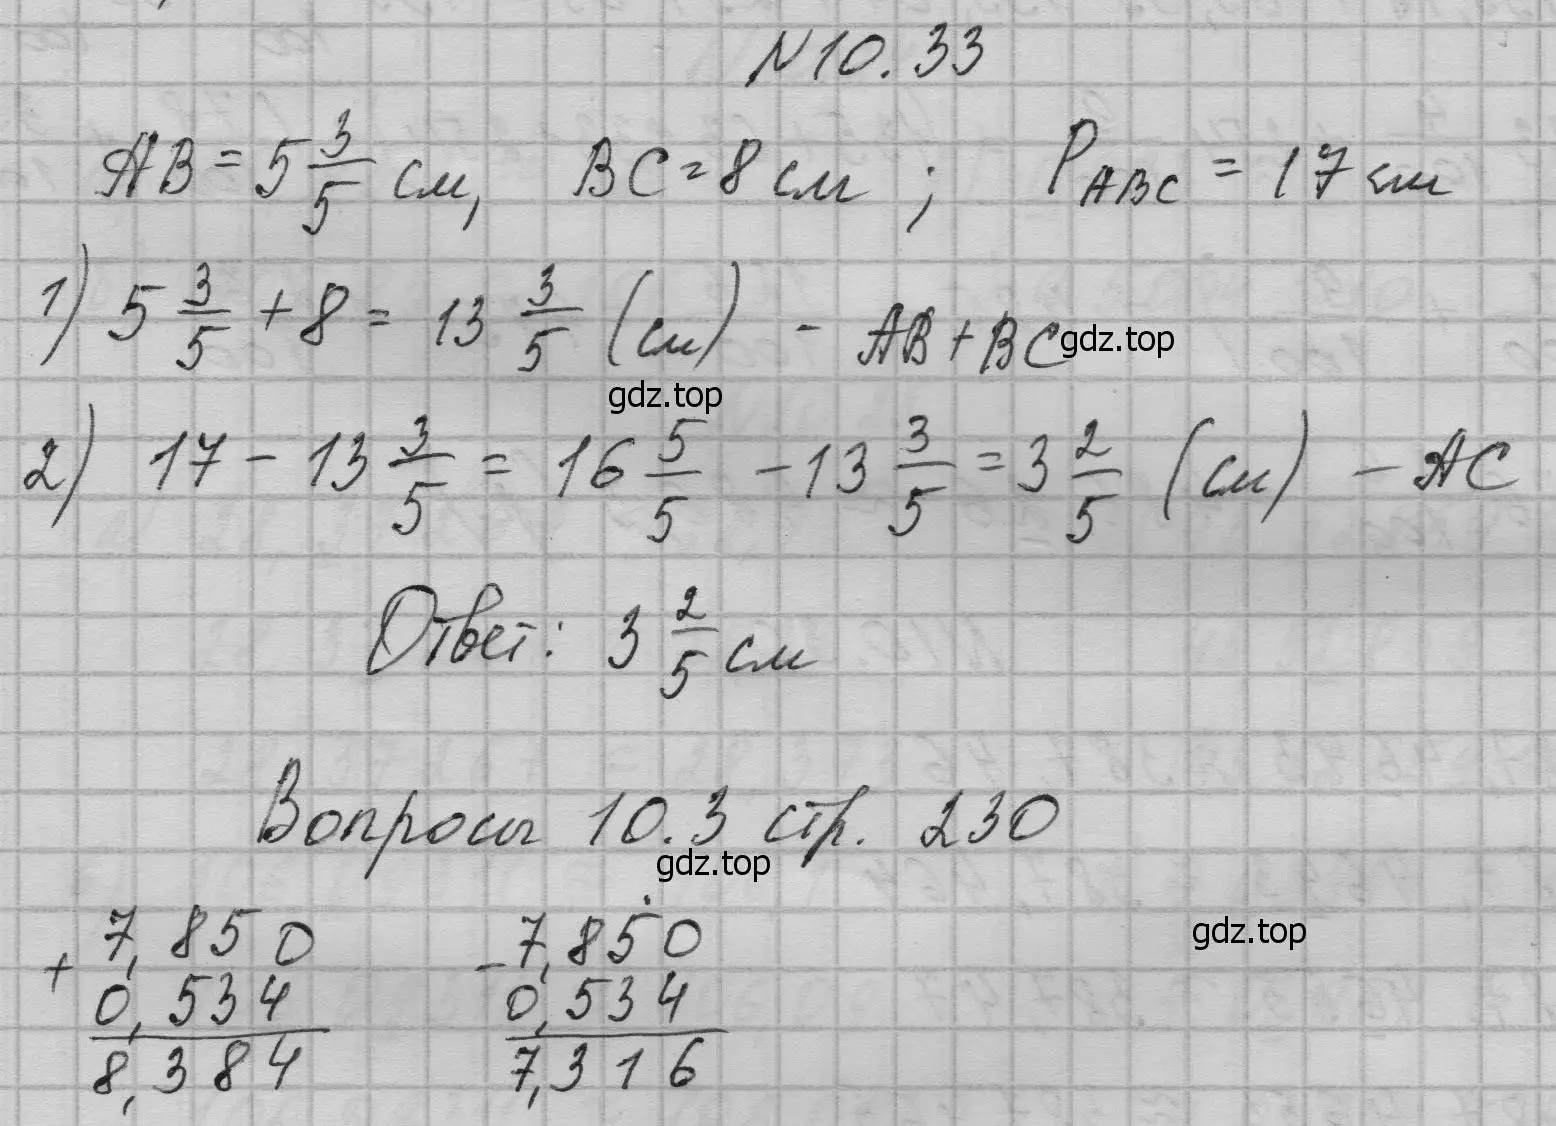 N10.33
AB = 5 3/5 см, BC = 8 см; P ABC = 17 см
1) 5 3/5 + 8 = 13 3/5 (см) - AB + BC
gdz.top
gdz.top
2) 17 - 13 3/5 = 16 5/5 - 13 3/5 = 3 2/5 (см) - AC
Ответ: 3 2/5 см
Вопросы 10.3 стр. 230
gdz.top
gdz.top
+ 7,850 - 7,850
0,534 0,534
8,384 7,316